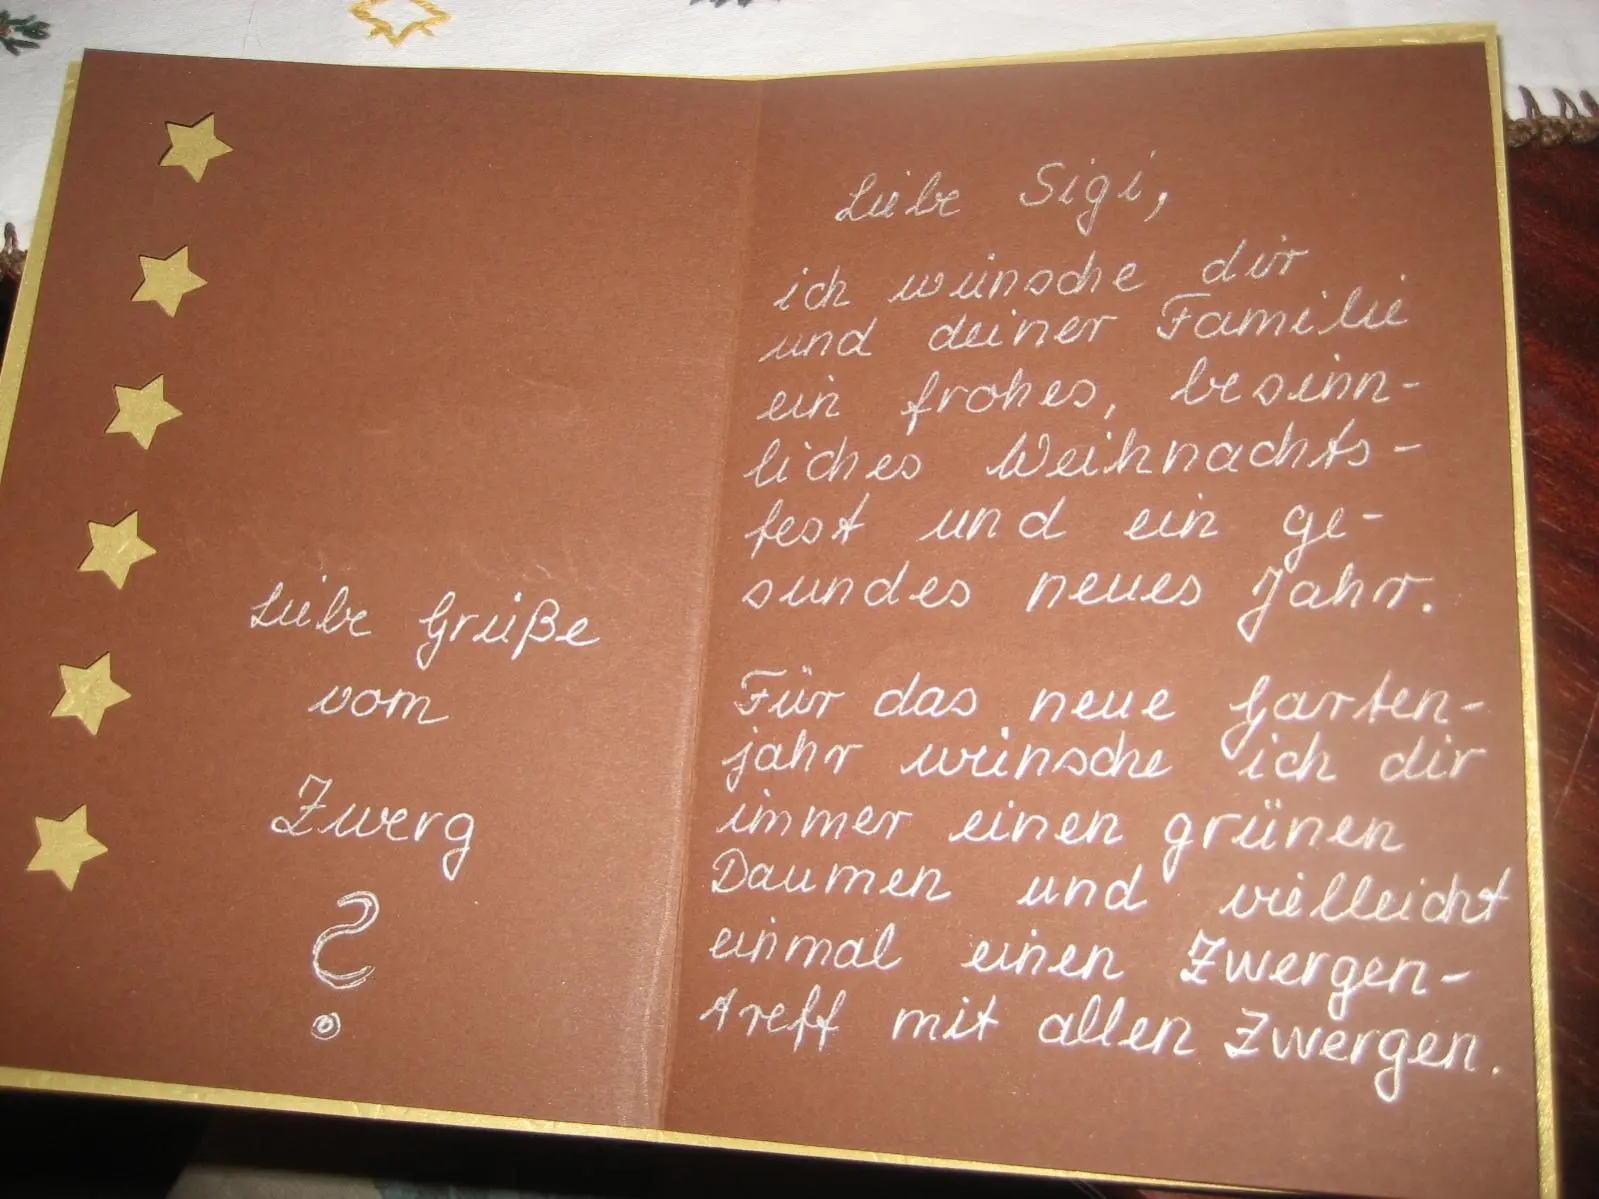 Liebe Sigi,
ich wünsche dir
und deiner Familie
ein frohes, besinn-
liches Weihnachts-
fest und ein ge-
sundes neues Jahr.
Für das neue Garten-
jahr wünsche ich dir
immer einen grünen
Daumen und vielleicht
einmal einen Zwergen-
treff mit allen Zwergen.
Liebe Grüße
vom
Zwerg
?